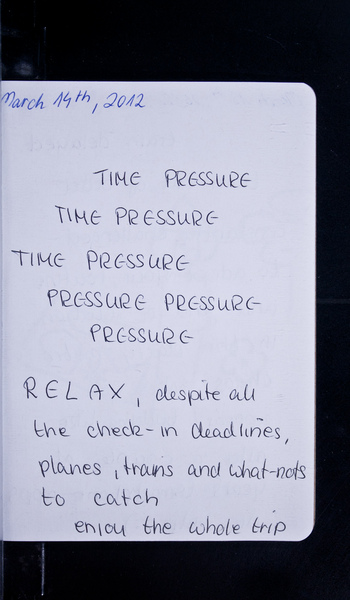 March 14th, 2012
TIME PRESSURE
TIME PRESSURE
TIME PRESSURE
PRESSURE PRESSURE
PRESSURE
RELAX, despite all
the check-in deadlines,
planes, trains and what-nots
to catch
enjoy the whole trip